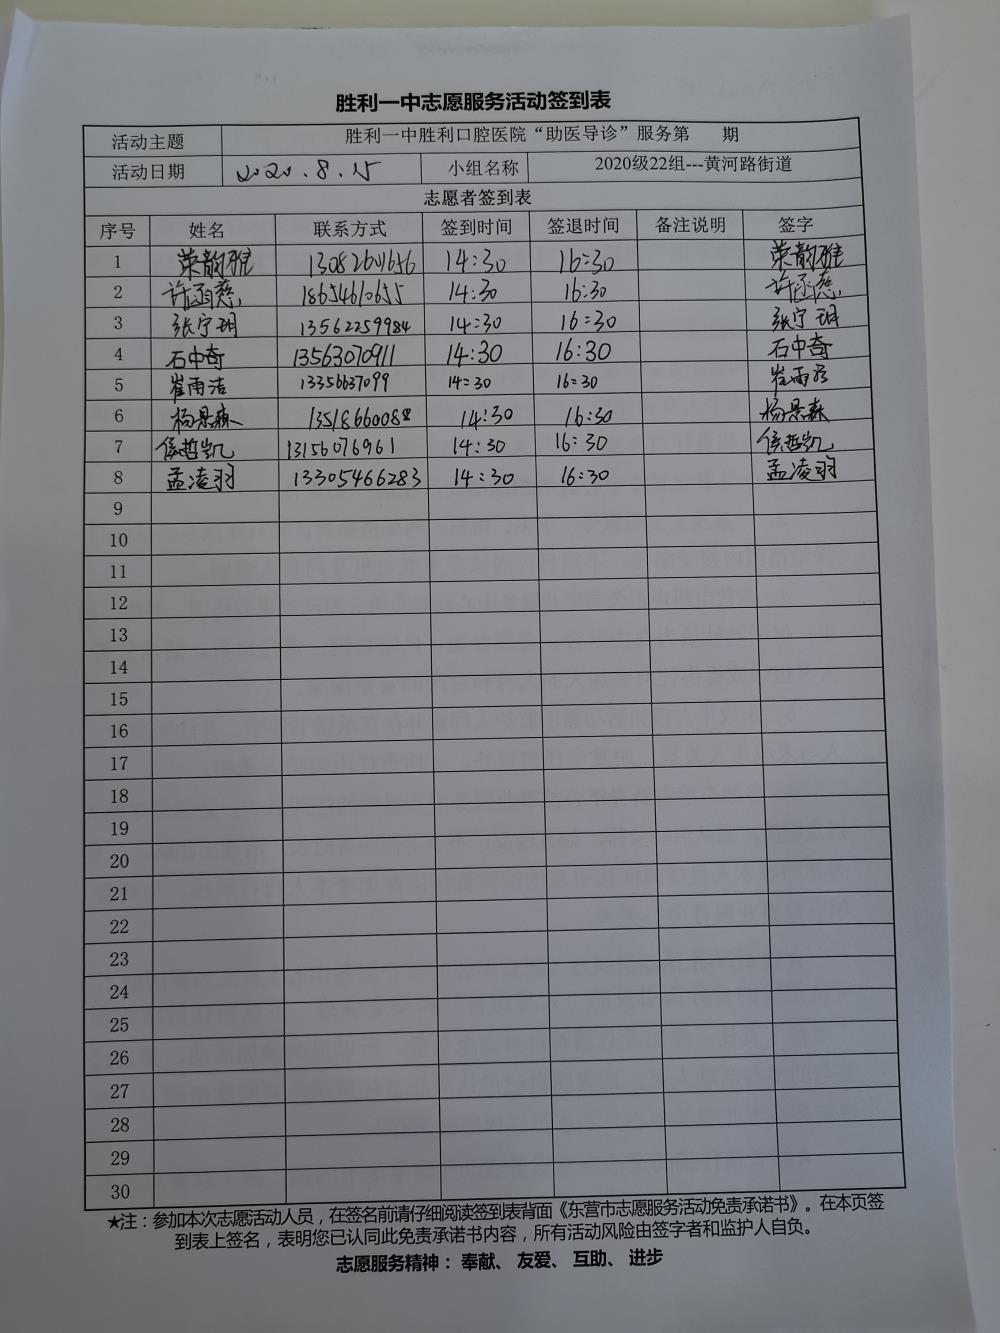 胜利一中志愿服务活动签到表
活动主题 胜利一中胜利口腔医院“助医导诊”服务第 期
活动日期 2020.8.15 小组名称 2020级22组---黄河路街道
志愿者签到表
序号 姓名 联系方式 签到时间 签退时间 备注说明 签字
1 荣韵雅 14:30 16:30 荣韵雅
2 许函慈 18654610655 14:30 16:30 许函慈
3 张宁玥 13562259984 14:30 16:30 张宁玥
4 石中奇 13563070911 14:30 16:30 石中奇
5 崔雨洁 13356637099 14:30 16:30 崔雨洁
6 杨景森 14:30 16:30 杨景森
7 侯哲凯 13156076961 14:30 16:30 侯哲凯
8 孟凌羽 13305466283 14:30 16:30 孟凌羽
9
10
11
12
13
14
15
16
17
18
19
20
21
22
23
24
25
26
27
28
29
30
★注：参加本次志愿活动人员，在签名前请仔细阅读签到表背面《东营市志愿服务活动免责承诺书》。在本页签
到表上签名，表明您已认同此免责承诺书内容，所有活动风险由签字者和监护人自负。
志愿服务精神： 奉献、 友爱、 互助、 进步